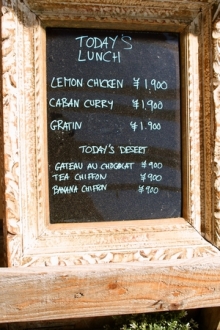 TODAY'S
LUNCH
LEMON CHICKEN ¥1,900
CABAN CURRY ¥1,900
GRATIN ¥1.900
TODAY'S DESERT
GATEAU AU CHOCOLAT ¥900
TEA CHIFFON ¥900
BANANA CHIFFON ¥900